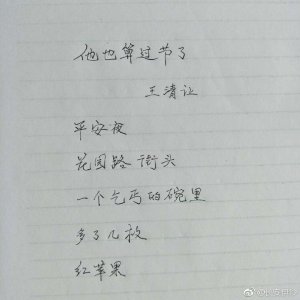 他也算过节了
王清让
平安夜
花园路 街头
一个乞丐的碗里
多了几枚
红苹果